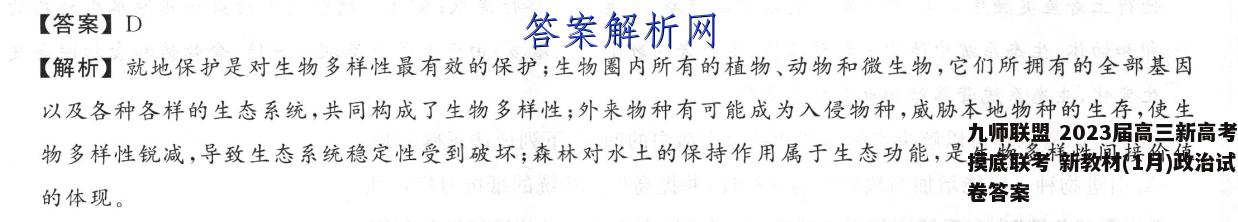 【答案】D
答案解析网
【解析】就地保护是对生物多样性最有效的保护;生物圈内所有的植物、动物和微生物,它们所拥有的全部基因
以及各种各样的生态系统,共同构成了生物多样性;外来物种有可能成为入侵物种,威胁本地物种的生存,使生
物多样性锐减,导致生态系统稳定性受到破坏;森林对水土的保持作用属于生态功能,是生物多样性间接价值
的体现。
九师联盟 2023届高三新高考
摸底联考 新教材(1月)政治试
卷答案